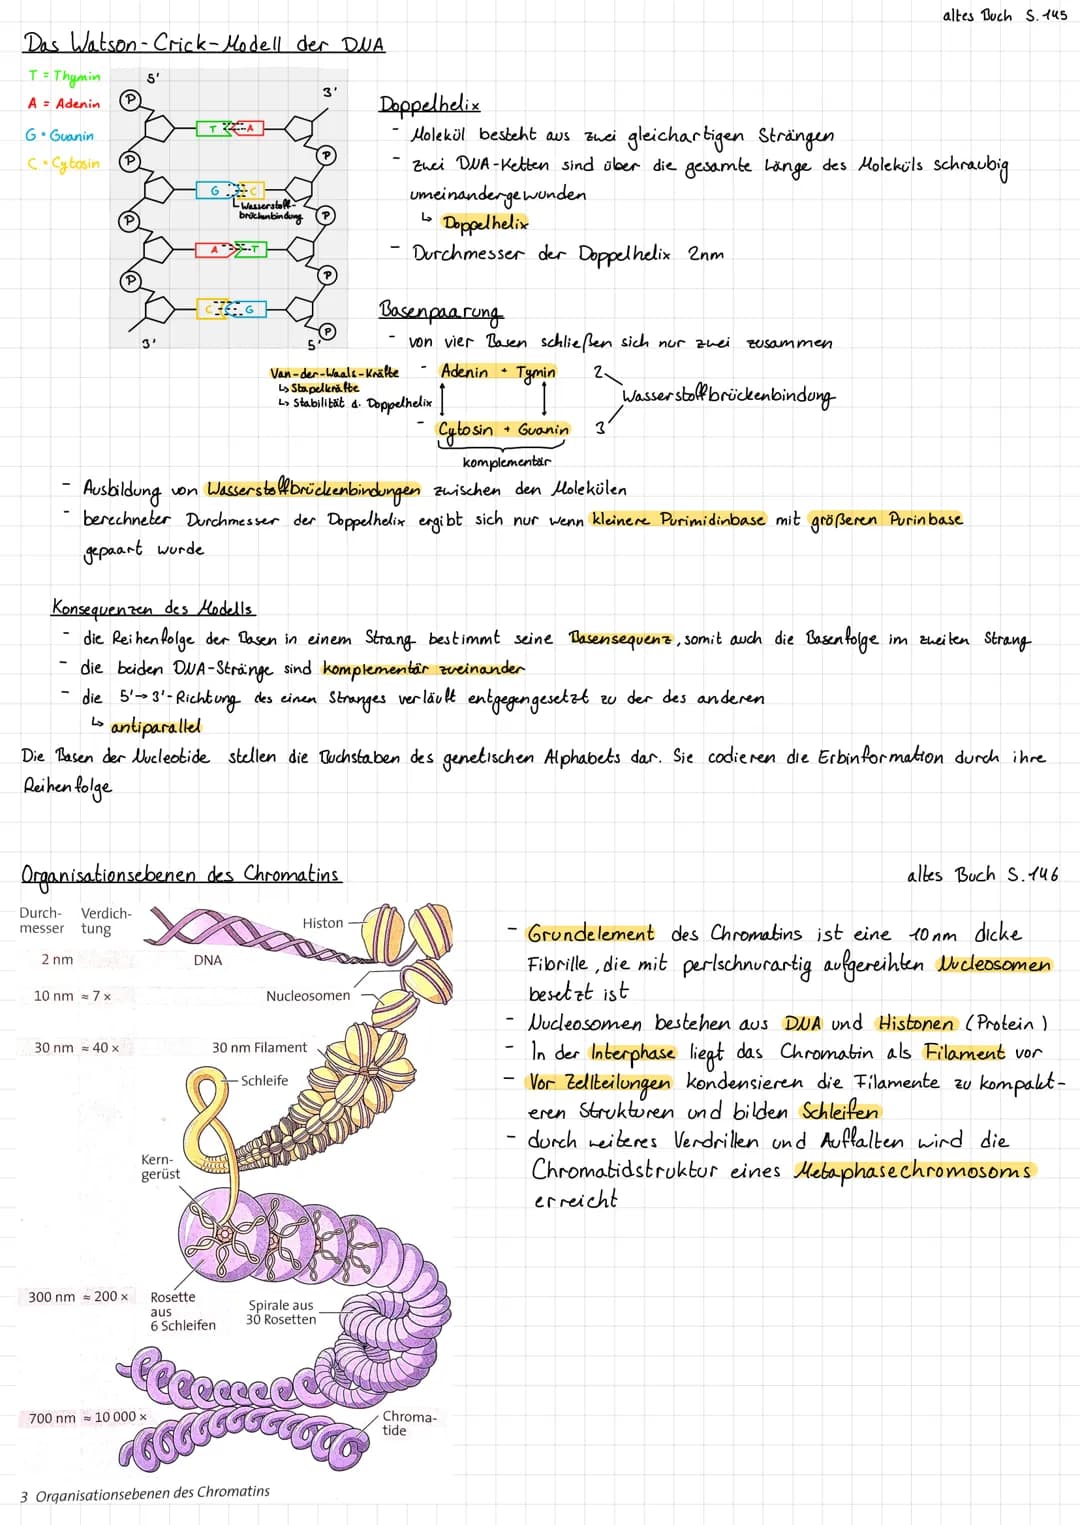 altes Buch S. 145
Das Watson-Crick-Modell der DNA
T = Thymin
A = Adenin
G = Guanin
C = Cytosin
5'
3'
P
T A
P
P
G C
Wasserstoff-
brückenbindung
P
P
A T
P
P
C G
P
3'
5'
Doppelhelix
- Molekül besteht aus zwei gleichartigen Strängen
- zwei DNA-Ketten sind über die gesamte Länge des Moleküls schraubig
umeinandergewunden
↳ Doppelhelix
- Durchmesser der Doppelhelix 2nm
Basenpaarung
- von vier Basen schließen sich nur zwei zusammen
Van-der-Waals-Kräfte
↳ Stapelkräfte
↳ Stabilität d. Doppelhelix
- Adenin + Tymin 2
Wasserstoffbrückenbindung
- Cytosin + Guanin 3
komplementär
- Ausbildung von Wasserstoffbrückenbindungen zwischen den Molekülen
- berechneter Durchmesser der Doppelhelix ergibt sich nur wenn kleinere Purimidinbase mit größeren Purinbase
gepaart wurde
Konsequenzen des Modells
- die Reihenfolge der Basen in einem Strang bestimmt seine Basensequenz, somit auch die Basenfolge im zweiten Strang
- die beiden DNA-Stränge sind komplementär zueinander
- die 5'→3'-Richtung des einen Stranges verläuft entgegengesetzt zu der des anderen
↳ antiparallel
Die Basen der Nucleotide stellen die Buchstaben des genetischen Alphabets dar. Sie codieren die Erbinformation durch ihre
Reihenfolge
Organisationsebenen des Chromatins
altes Buch S. 146
Durch- Verdich-
messer tung
2 nm
10 nm ≈ 7 x
30 nm ≈ 40 x
300 nm ≈ 200 x
700 nm ≈ 10 000 x
Histon
DNA
Nucleosomen
30 nm Filament
Schleife
Kern-
gerüst
Rosette
aus
6 Schleifen
Spirale aus
30 Rosetten
Chroma-
tide
3 Organisationsebenen des Chromatins
- Grundelement des Chromatins ist eine 10nm dicke
Fibrille, die mit perlschnurartig aufgereihten Nucleosomen
besetzt ist
- Nucleosomen bestehen aus DNA und Histonen (Protein)
- In der Interphase liegt das Chromatin als Filament vor
- Vor Zellteilungen kondensieren die Filamente zu kompakt-
eren Strukturen und bilden Schleifen
- durch weiteres Verdrillen und Auffalten wird die
Chromatidstruktur eines Metaphasechromosoms
erreicht